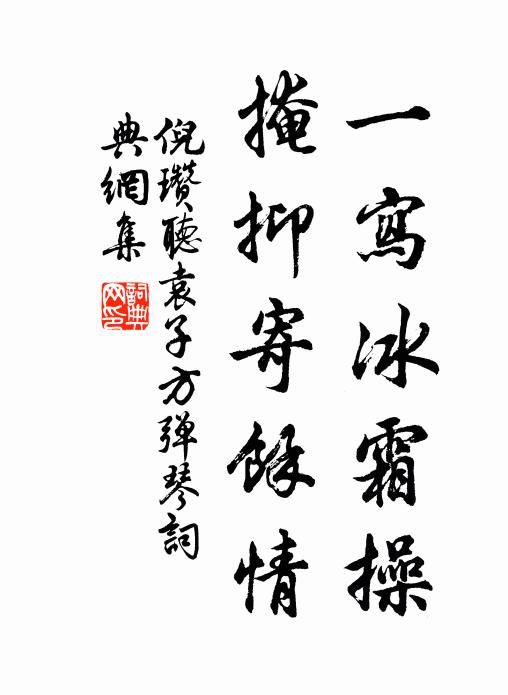 一寫冰霜操
掩抑寄餘情
倪瓚聽袁子方弹琴詞
典網集
詞典
网印